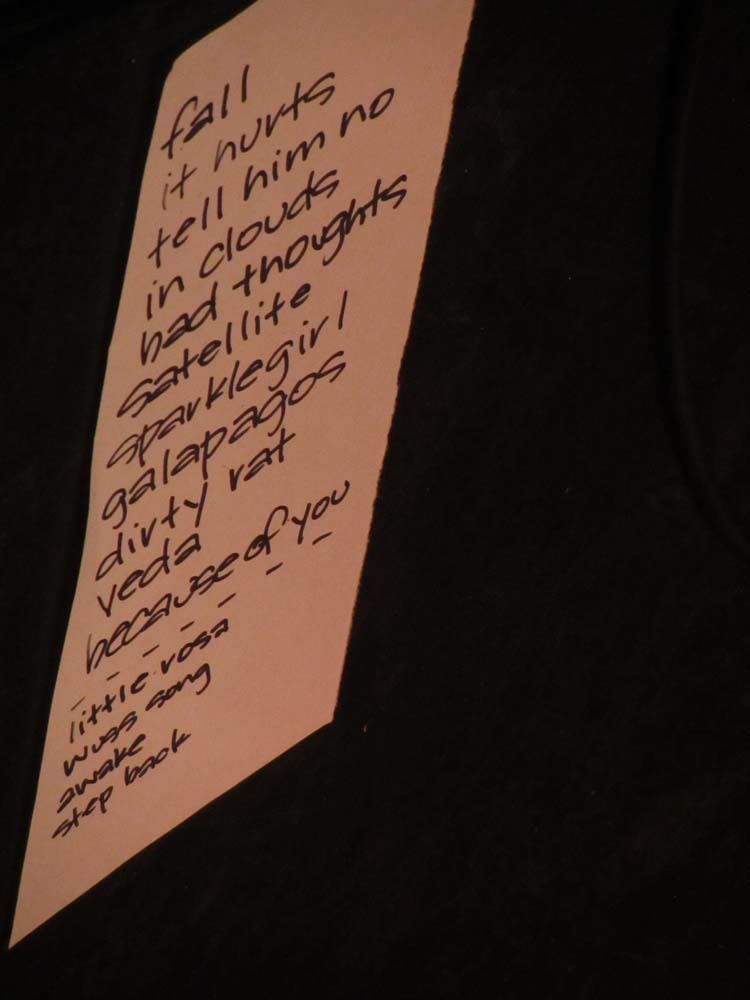 fall
it hurts
tell him no
in clouds
bad thoughts
satellite
sparklegirl
galapagos
dirty rat
veda
because of you
- - - - - - -
little rosa
wuss song
awake
step back